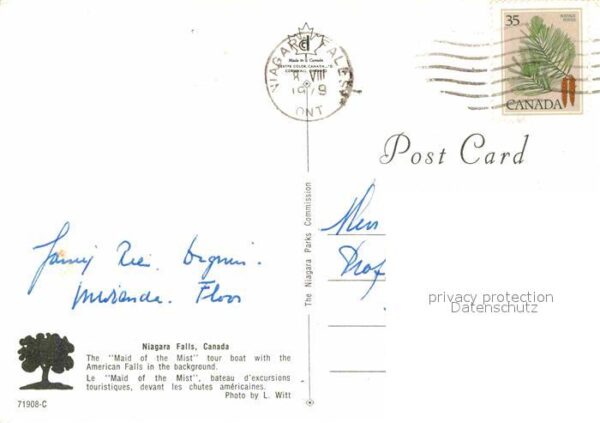 35
CANADA
NIAGARA FALLS
8 VIII
1979
ONT
Made in Canada
Post Card
The Niagara Parks Commission
Floor
privacy protection
Datenschutz
Niagara Falls, Canada
The "Maid of the Mist" tour boat with the
American Falls in the background.
Le "Maid of the Mist", bateau d'excursions
touristiques, devant les chutes américaines.
Photo by L. Witt
71908-C